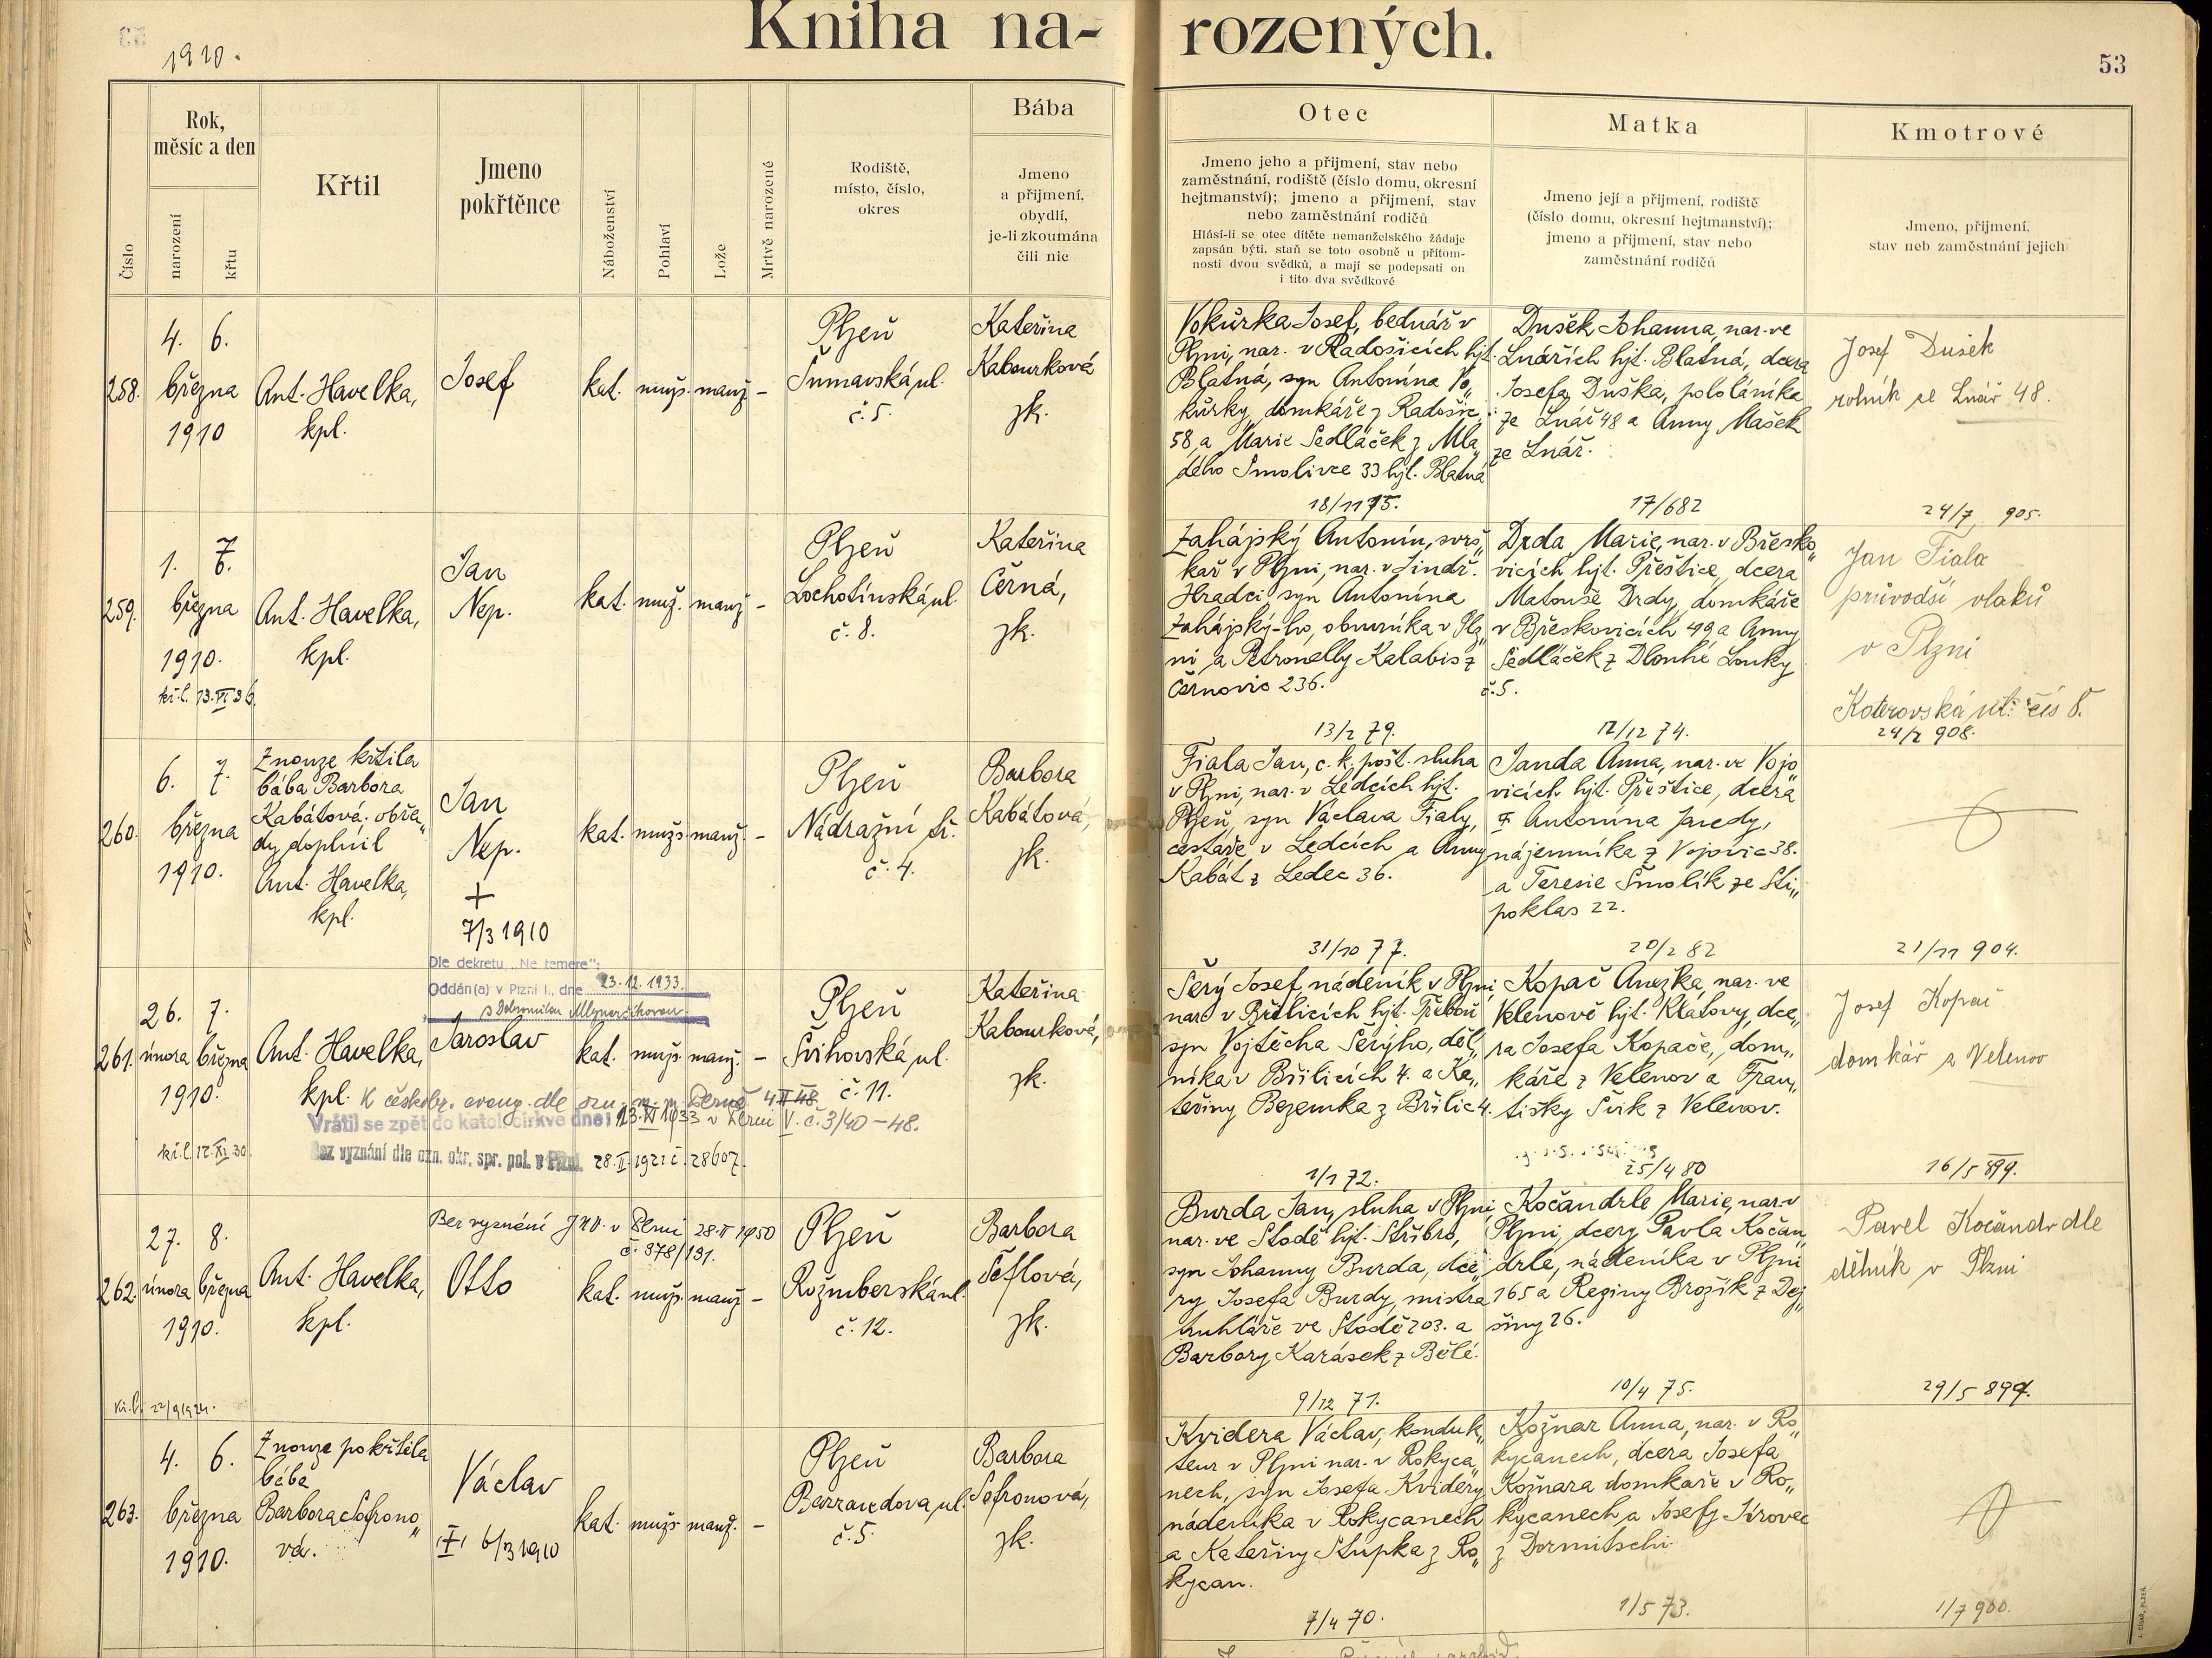 Kniha na- rozených.
1910.
53
Číslo
Rok,
měsíc a den
narození
křtu
Křtil
Jmeno
pokřtěnce
Náboženství
Pohlaví
Lože
Mrtvě narozené
Rodiště,
místo, číslo,
okres
Bába
Jmeno
a přijmení,
obydlí,
je-li zkoumána
čili nic
Otec
Jmeno jeho a přijmení, stav nebo
zaměstnání, rodiště (číslo domu, okresní
hejtmanství); jmeno a přijmení, stav
nebo zaměstnání rodičů
Hlásí-li se otec dítěte nemanželského žádaje
zapsán býti, staň se toto osobně u přítom-
nosti dvou svědků, a mají se podepsati on
i tito dva svědkové
Matka
Jmeno její a přijmení, rodiště
(číslo domu, okresní hejtmanství);
jmeno a přijmení, stav nebo
zaměstnání rodičů
Kmotrové
Jmeno, přijmení,
stav neb zaměstnání jejich
258.
4. 6.
března
1910
Ant. Havelka,
kpl.
Josef
kat. mužs. manž. -
Plzeň
Šumavská ul.
č. 5.
Kateřina
Kabourková
zk.
Vokůrka Josef, bednář v
Plzni, nar. v Radošicích hjt.
Blatná, syn Antonína Vo„
kůrky, domkáře z Radošic
58 a Marie Sedláček z Mla„
dého Smolivce 33 hjt. Blatná
18/11 75.
Dušek Johanna, nar. ve
Lnářích hjt. Blatná, dcera
Josefa Duška, pololáníka
ze Lnář 48 a Anny Mašek
ze Lnář.
17/6 82
Josef Dušek
rolník ze Lnář 48.
24/7 905.
259.
1. 6. 7
března
1910.
kř. l. 13. VI 36.
Ant. Havelka,
kpl.
Jan
Nep.
kat. muž. manž -
Plzeň
Lochotínská ul.
č. 8.
Kateřina
Černá,
zk.
Zahájský Antonín, svrš„
kař v Plzni, nar. v Jindř.
Hradci syn Antonína
Zahájský-ho, obuvníka v Plz„
ni a Petronelly Kalabis z
Černovic 236.
13/2 79.
Drda Marie, nar. v Břesko„
vicích hjt. Přeštice, dcera
Matouše Drdy, domkáře
v Břeskovicích 49 a Anny
Sedláček z Dlouhé Louky
č. 5.
12/12 74.
Jan Fiala
průvodčí vlaků
v Plzni
Koterovská ul. čís 8.
24/2 908.
260.
6. 7.
března
1910.
Z nouze křtila
bába Barbora
Kabátová. obřa„
dy doplnil
Ant. Havelka,
kpl.
Jan
Nep.
+
7/3 1910
kat. mužs manž. -
Plzeň
Nádražní tř.
č. 4.
Barbora
Kabátová,
zk.
Fiala Jan, c. k. pošt. sluha
v Plzni, nar. v Ledcích hjt.
Plzeň, syn Václava Fialy,
cestáře v Ledcích a Anny
Kabát z Ledec 36.
31/10 77.
Janda Anna, nar. ve Vojo„
vicích hjt. Přeštice, dcera
Antonína Jandy,
nájemníka z Vojovic 38.
a Teresie Smolík ze Sti„
poklas 22.
20/2 82
21/11 904.
261.
26. 7.
února března
1910.
kř. l. 12. XI 30.
Ant. Havelka,
kpl.
Dle dekretu „Ne temere":
Oddán(a) v Plzni I., dne 23. 12. 1933.
s Dobromilou Mlynaříkovou
Jaroslav
kat. mužs. manž. -
Plzeň
Švihovská ul.
č. 11.
Kateřina
Kabourková,
zk.
K českobr. evang. dle ozn. m. n. Plzeň 4 II 48
V. č. 3/40-48.
Vrátil se zpět do katol. církve dne: 23. XI 1933 v Plzni
Bez vyznání dle ozn. okr. spr. pol. v Plzni 28. II. 1921 č. 28607.
Šerý Josef, nádeník v Plzni
nar. v Břilicích hjt. Třeboň
syn Vojtěcha Šerýho, děl„
níka v Břilicích 4. a Ka„
teřiny Bezemka z Břilic 4.
1/1 72.
Kopač Anežka, nar. ve
Velenově hjt. Klatovy, dce„
ra Josefa Kopače, dom„
káře z Velenov a Fran„
tišky Švik z Velenov.
25/4 80
Josef Kopač
domkář z Velenov
16/5 899.
262.
27. 8.
února března
1910.
kř. l. 22/9 1924.
Ant. Havelka,
kpl.
Bez vyznání JNV. v Plzni 28. II 1950
č. 378/191.
Otto
kat. mužs. manž -
Plzeň
Rožmberská ul.
č. 12.
Barbora
Šeflová,
zk.
Burda Jan, sluha v Plzni
nar. ve Stodě hjt. Stříbro,
syn Johanny Burda, dce„
ry Josefa Burdy, mistra
truhláře ve Stodě 203. a
Barbory Karásek z Bělé.
9/12 71.
Kočandrle Marie, nar. v
Plzni, dcery Pavla Kočan„
drle, nádeníka v Plzni
165 a Reginy Brožík z Dej„
šiny 26.
10/4 75.
Pavel Kočandrdle
dělník v Plzni
29/5 899.
263.
4. 6.
března
1910.
Z nouze pokřtila
bába
Barbora Sofrono„
vá.
Václav
+ 6/3 1910
kat. mužs manž. -
Plzeň
Barrandova ul.
č. 5.
Barbora
Sofronová,
zk.
Kvidera Václav, konduk„
teur v Plzni nar. v Rokyca„
nech, syn Josefa Kvidery
nádeníka v Rokycanech
a Kateřiny Stupka z Ro„
kycan.
7/4 70.
Kožnar Anna, nar. v Ro„
kycanech, dcera Josefa
Kožnara domkaře v Ro„
kycanech a Josefy Jírovec
z Dormitschi.
1/5 73.
1/7 900.